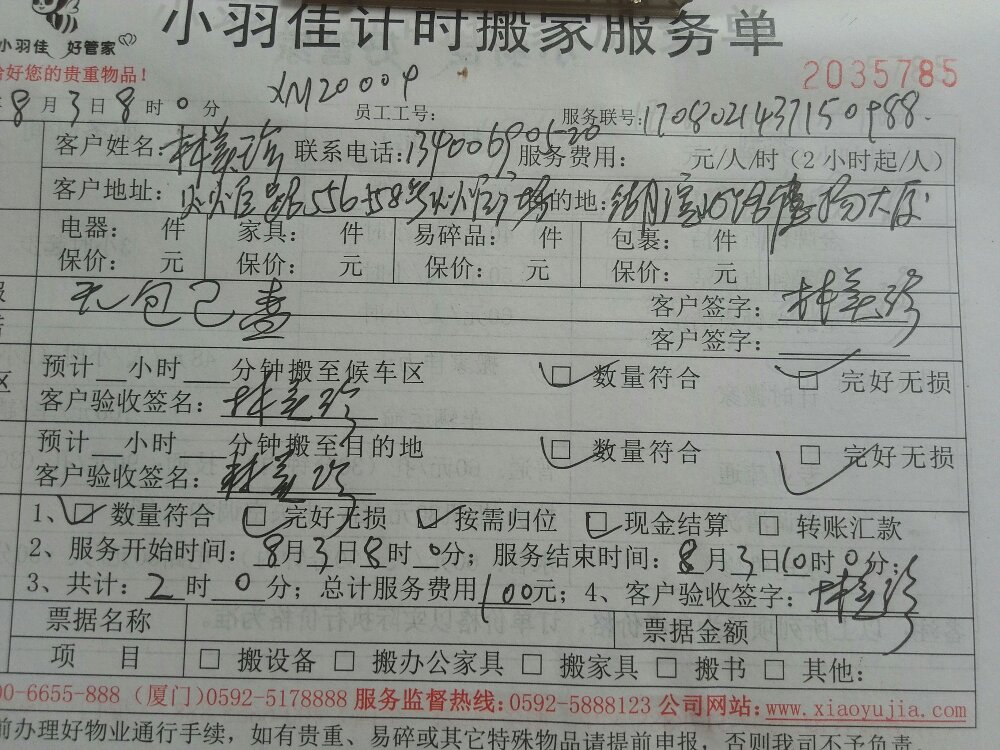 小羽佳计时搬家服务单
小羽佳 好管家
好您的贵重物品！
2035785
8月3日8时0分 XM20009 员工工号： 服务联号：1708021437150988
客户姓名：林美珍 联系电话：13400690520 服务费用： 元/人/时（2小时起/人）
客户地址： 556-58号 的地： 大厦
电器： 件 家具： 件 易碎品： 件 包裹： 件
保价： 元 保价： 元 保价： 元 保价： 元
无包已查 客户签字：林美珍
客户签字：
预计 小时 分钟搬至候车区 □ 数量符合 □ 完好无损
区 客户验收签名：林美珍
预计 小时 分钟搬至目的地 □ 数量符合 □ 完好无损
客户验收签名：林美珍
1、□ 数量符合 □ 完好无损 □ 按需归位 □ 现金结算 □ 转账汇款
2、服务开始时间：8月3日8时0分；服务结束时间：8月3日10时0分；
3、共计：2时0分；总计服务费用100元；4、客户验收签字：林美珍
票据名称 票据金额
项 目 □ 搬设备 □ 搬办公家具 □ 搬家具 □ 搬书 □ 其他：
00-6655-888（厦门）0592-5178888 服务监督热线：0592-5888123 公司网站：www.xiaoyujia.com
前办理好物业通行手续，如有贵重、易碎或其它特殊物品请提前申报，否则我司不予负责